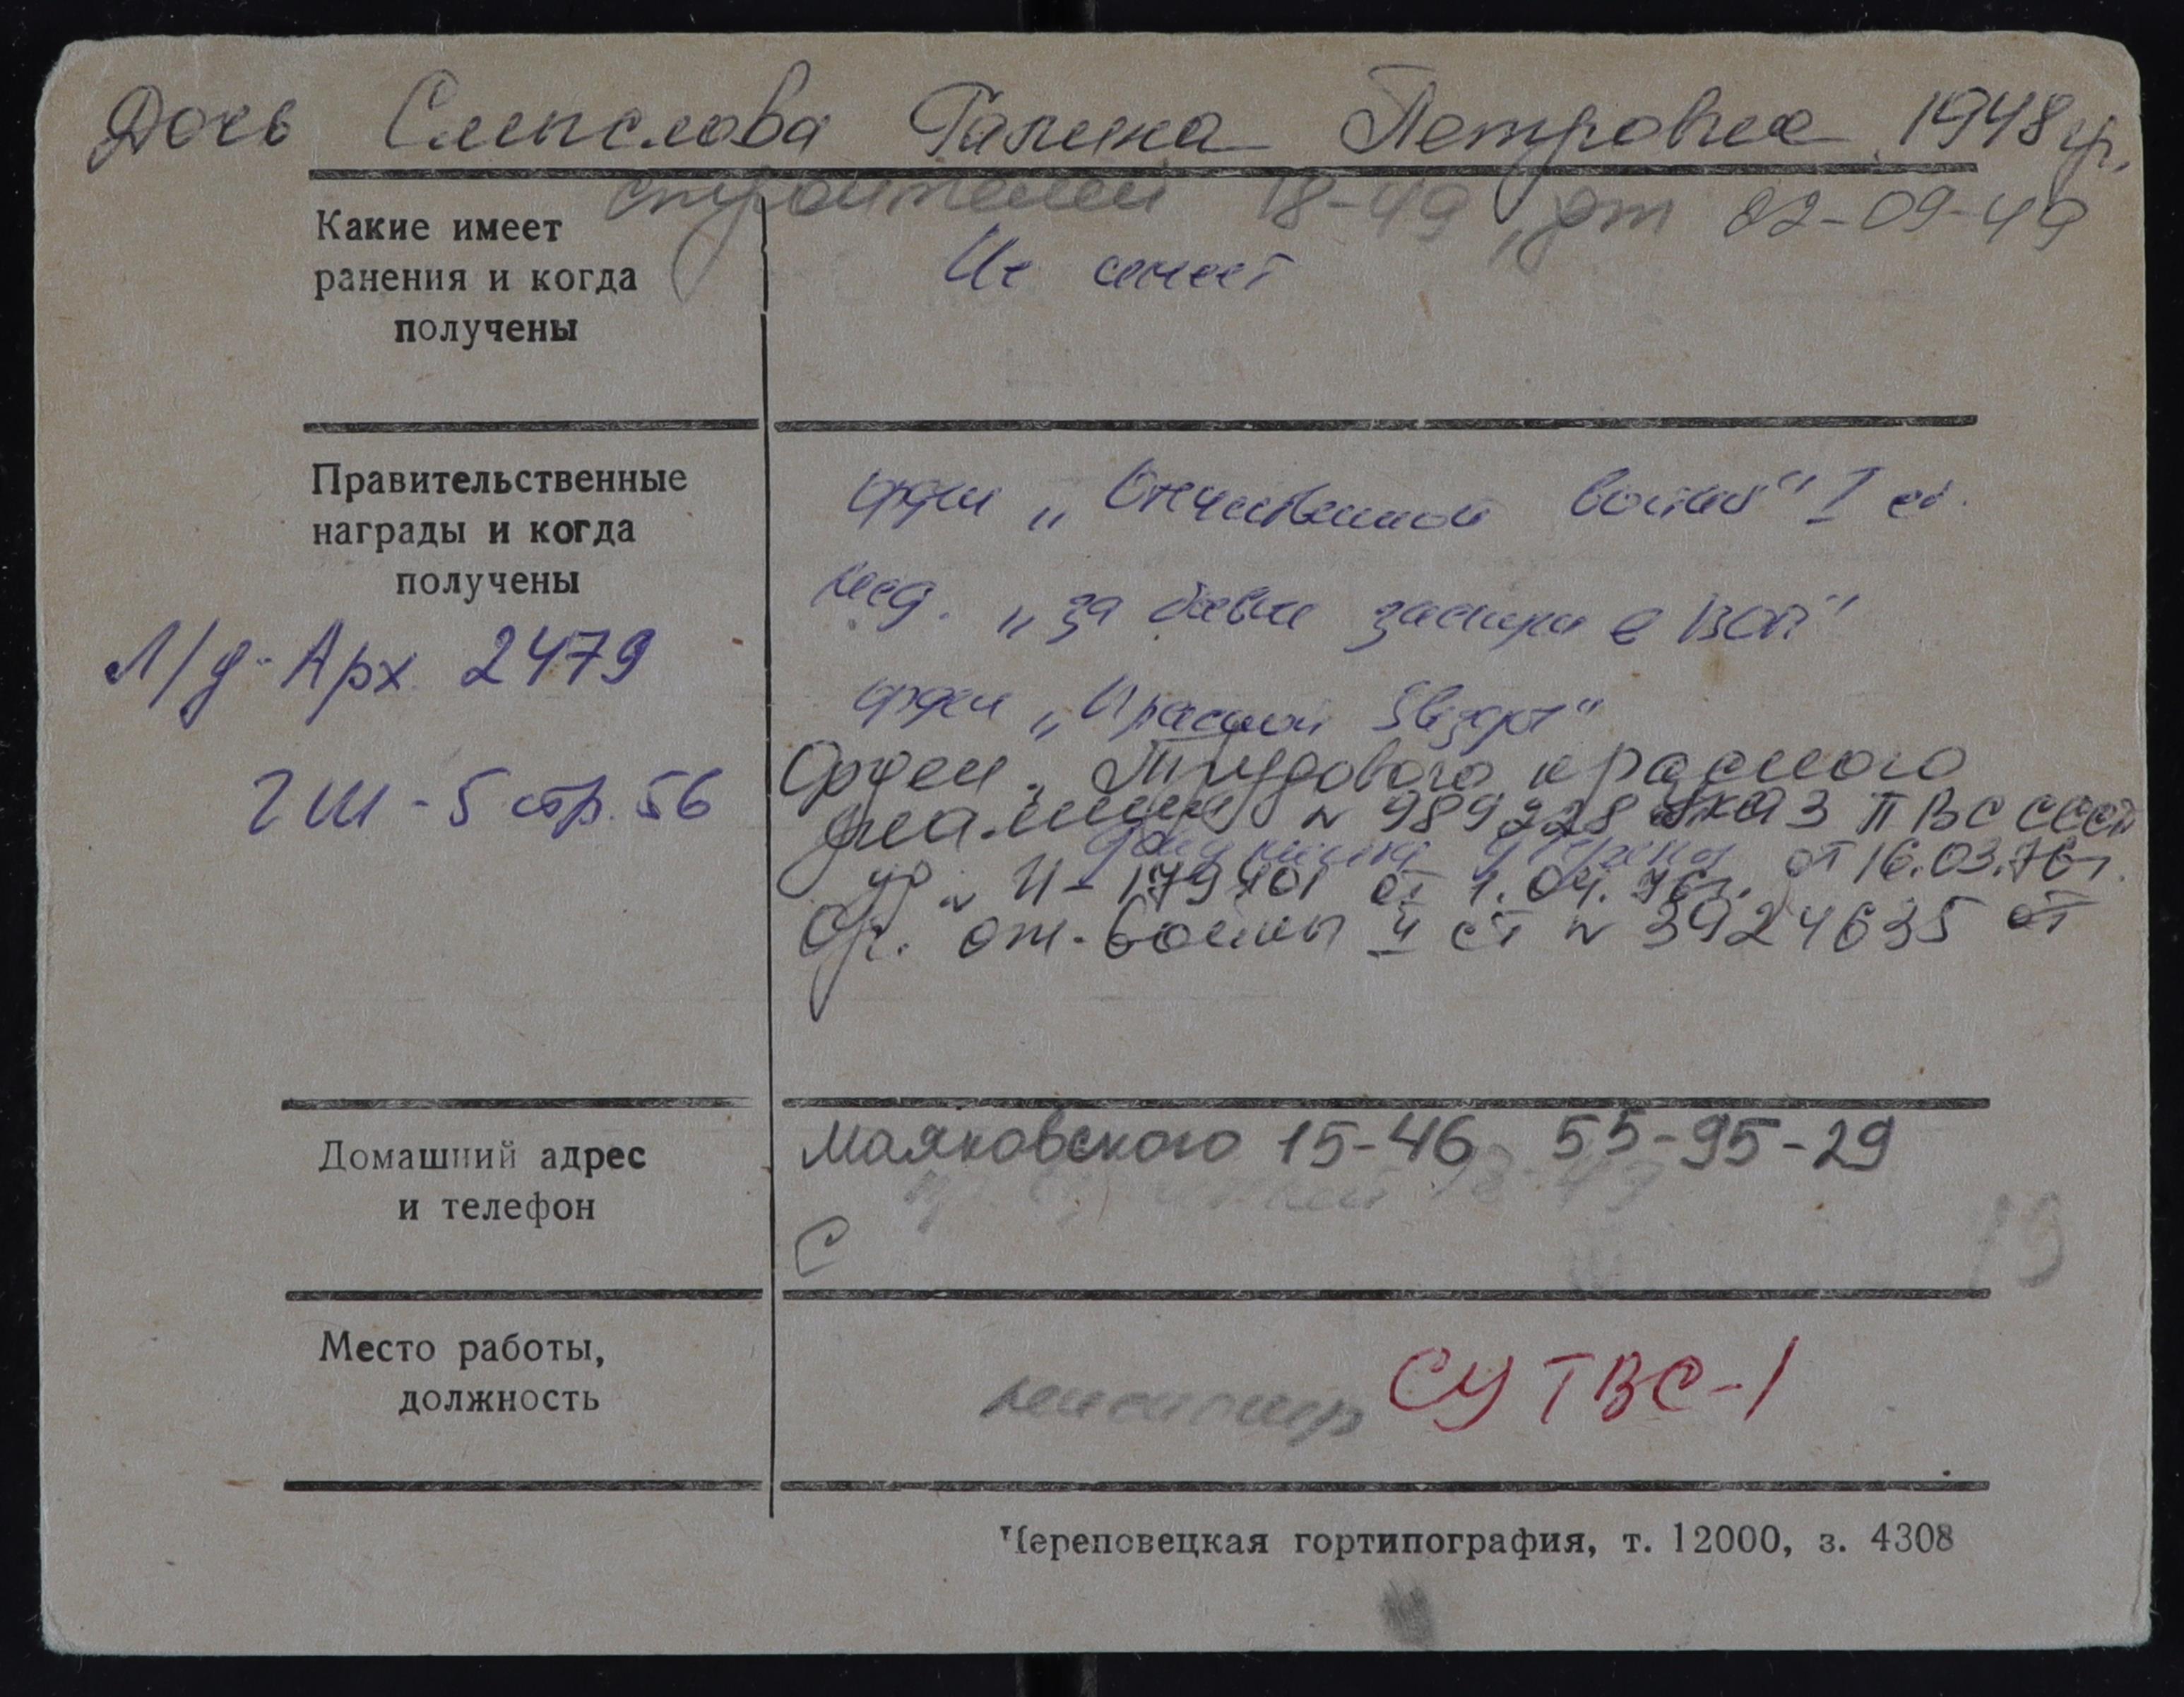 Дочь Смыслова Галина Петровна 1948 гр.
строителей 18-49, дт 82-09-49
Какие имеет
ранения и когда
получены
Не имеет
Правительственные
награды и когда
получены
Л/д - Арх 2479
2 Ш - 5 стр. 56
орден „Отечественной войны" I ст.
мед. „За боевые заслуги в ВОВ"
орден „Красной Звезды"
Орден „Трудового красного
знамени № 989228 Указ ПВС СССР
от 16.03.76г.
уд № И-179401 от 1.04.76г.
Ор. от. войны II ст № 3924635 от
Домашний адрес
и телефон
Маяковского 15-46 55-95-29
18-49
С
19
Место работы,
должность
пенсионер СУ ТВС-1
Череповецкая гортипография, т. 12000, з. 4308